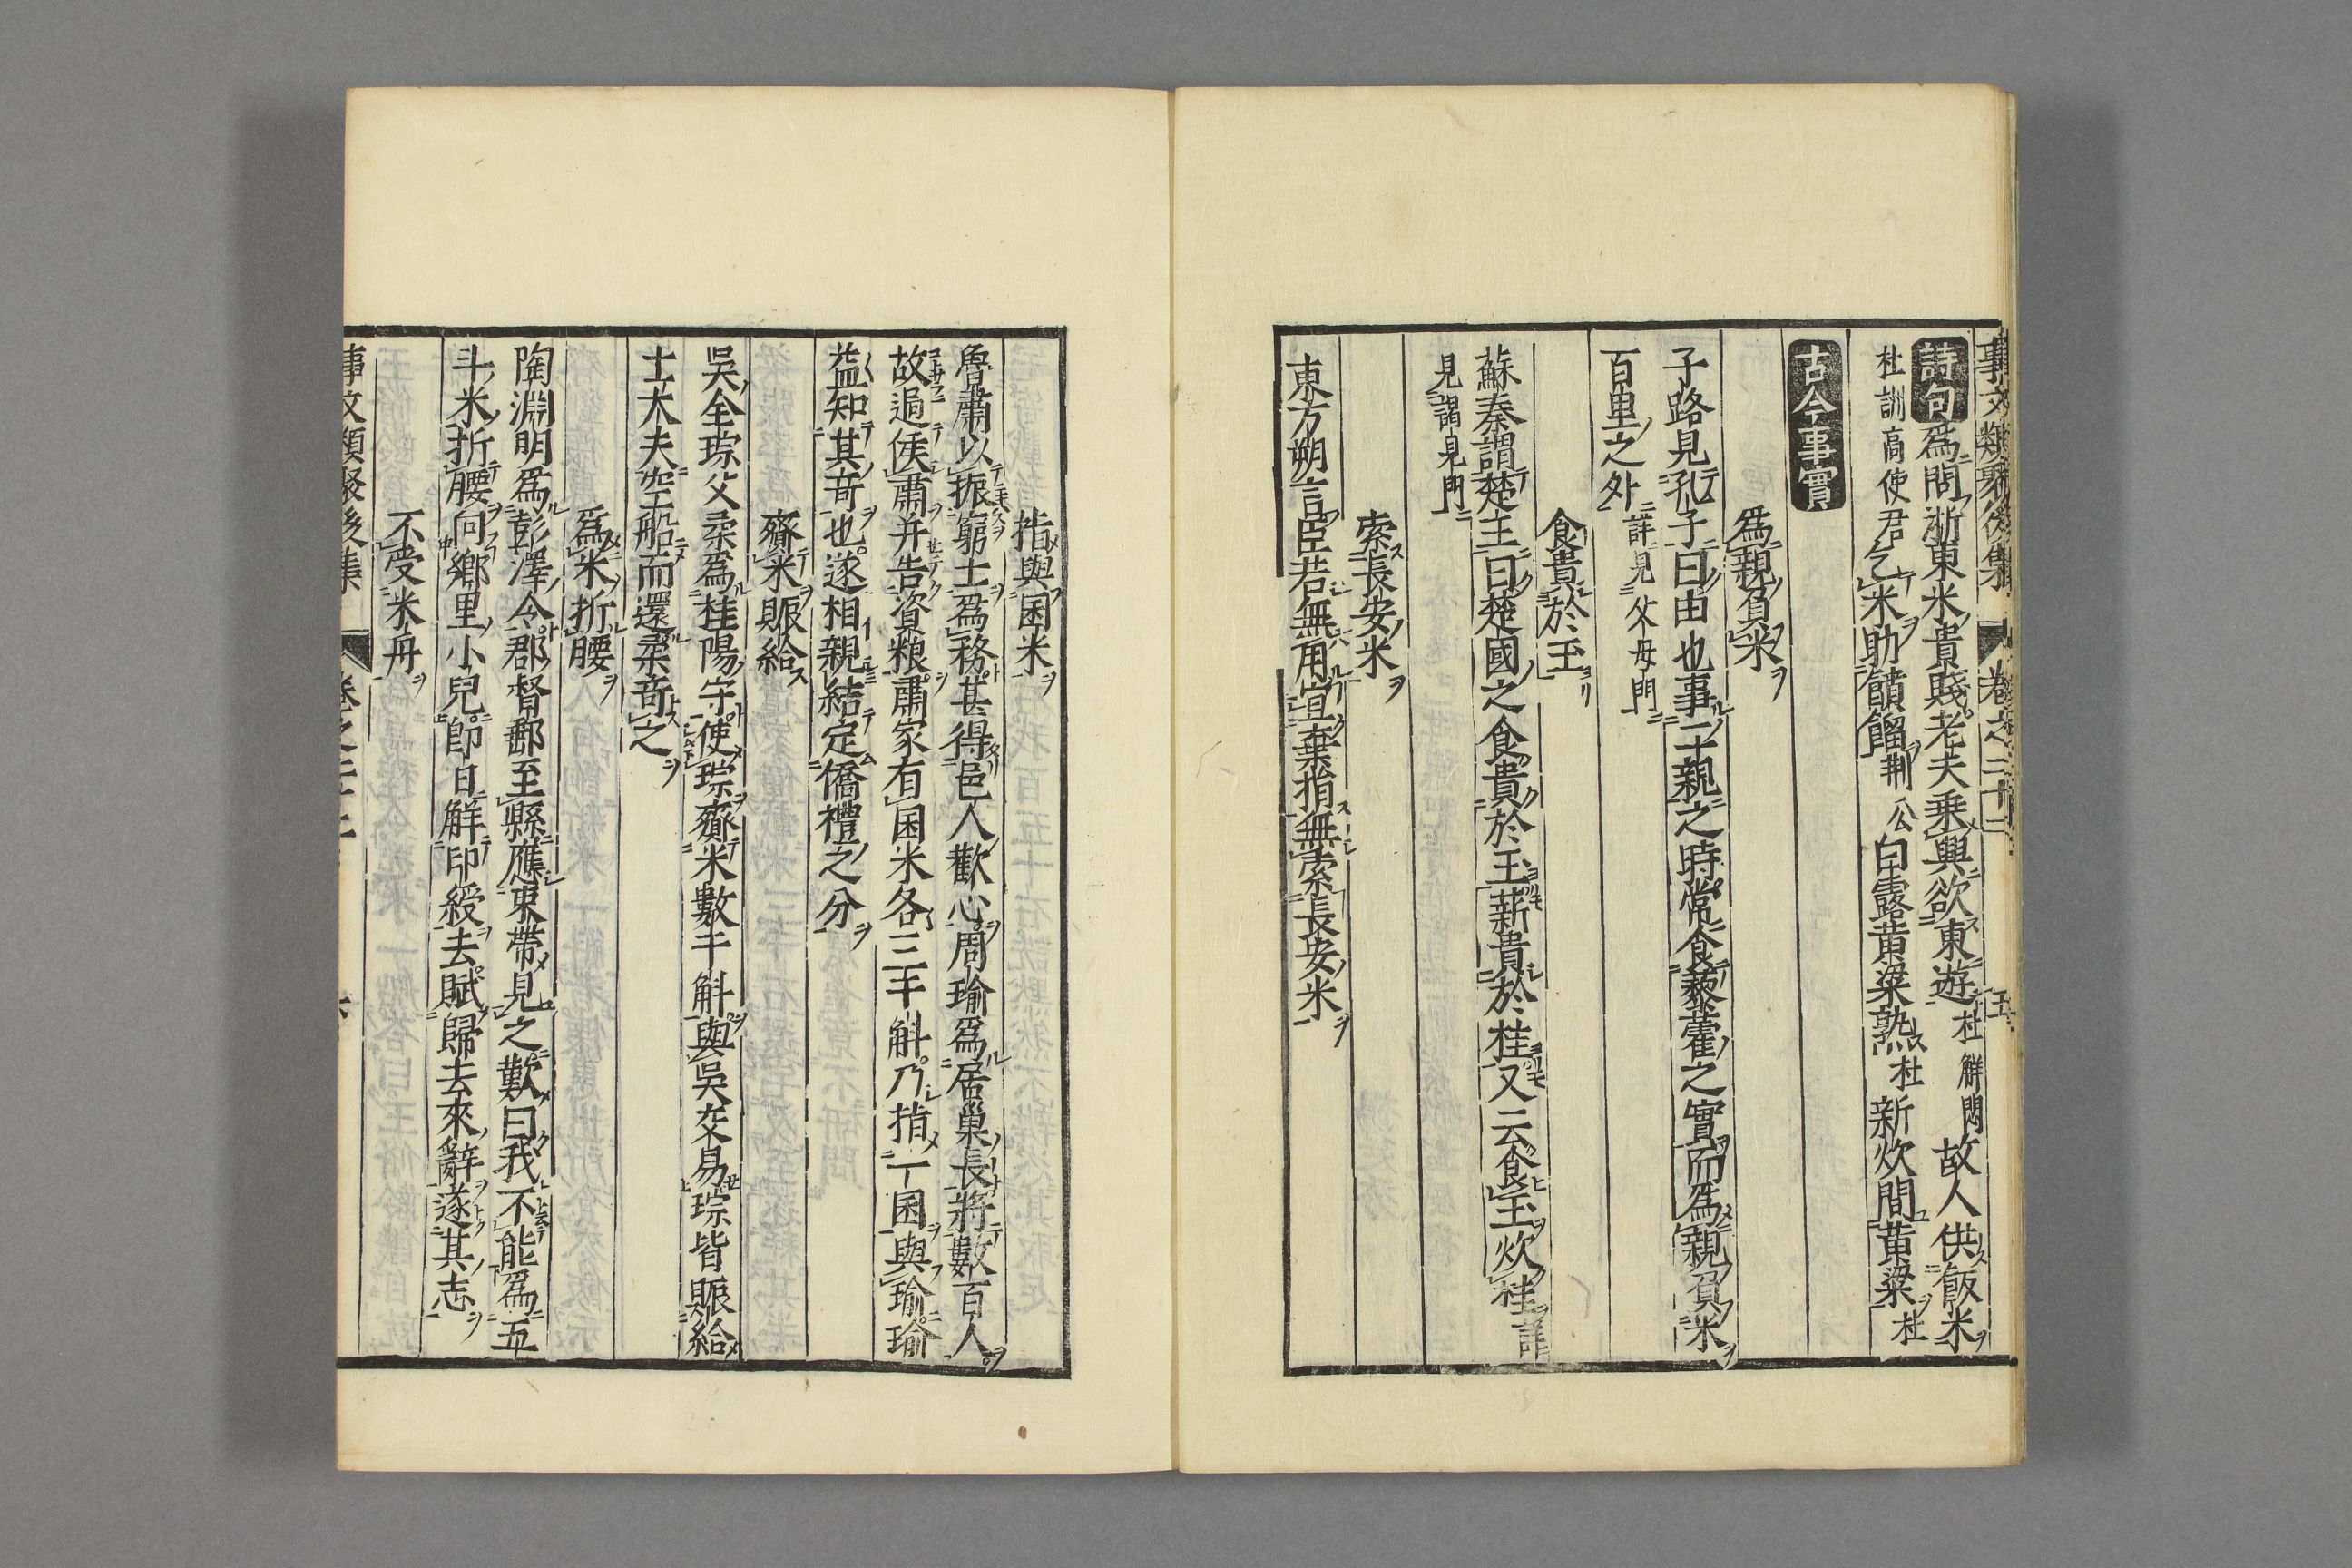 事文類聚後集 卷之二十二 五
詩句 爲問淅東米貴賤老夫乗興欲東遊 杜 觧悶 故人供飯米
杜 訓 高使君 乞米助饋餾 荆公 白露黄粱熟 杜 新炊間黄粱 杜
古今事實
爲親負米
子路見孔子曰由也事二親之時常食藜藿之實而爲親負米
百里之外 詳見父母門
食貴於玉
蘇秦謂楚王曰楚國之食貴於玉薪貴於桂又云食玉炊桂 詳
見謁見門
索長安米
東方朔言臣若無用宜棄捐無索長安米
指與囷米
魯肅以振窮士爲務甚得邑人歡心周瑜爲居巢長將數百人
故過侯肅并告資粮肅家有囷米各三千斛乃指一囷與瑜瑜
益知其竒也遂相親結定僑禮之分
齎米賑給
吳全琮父柔爲桂陽守使琮齎米數千斛與吳交易琮皆賑給
士大夫空船而還柔竒之
爲米折腰
陶淵明爲彭澤令郡督郵至縣應束帶見之歎曰我不能爲五
斗米折腰向鄉里小兒卽日觧印綬去賦歸去來辭遂其志
不受米舟
事文類聚後集 卷之二十二 六